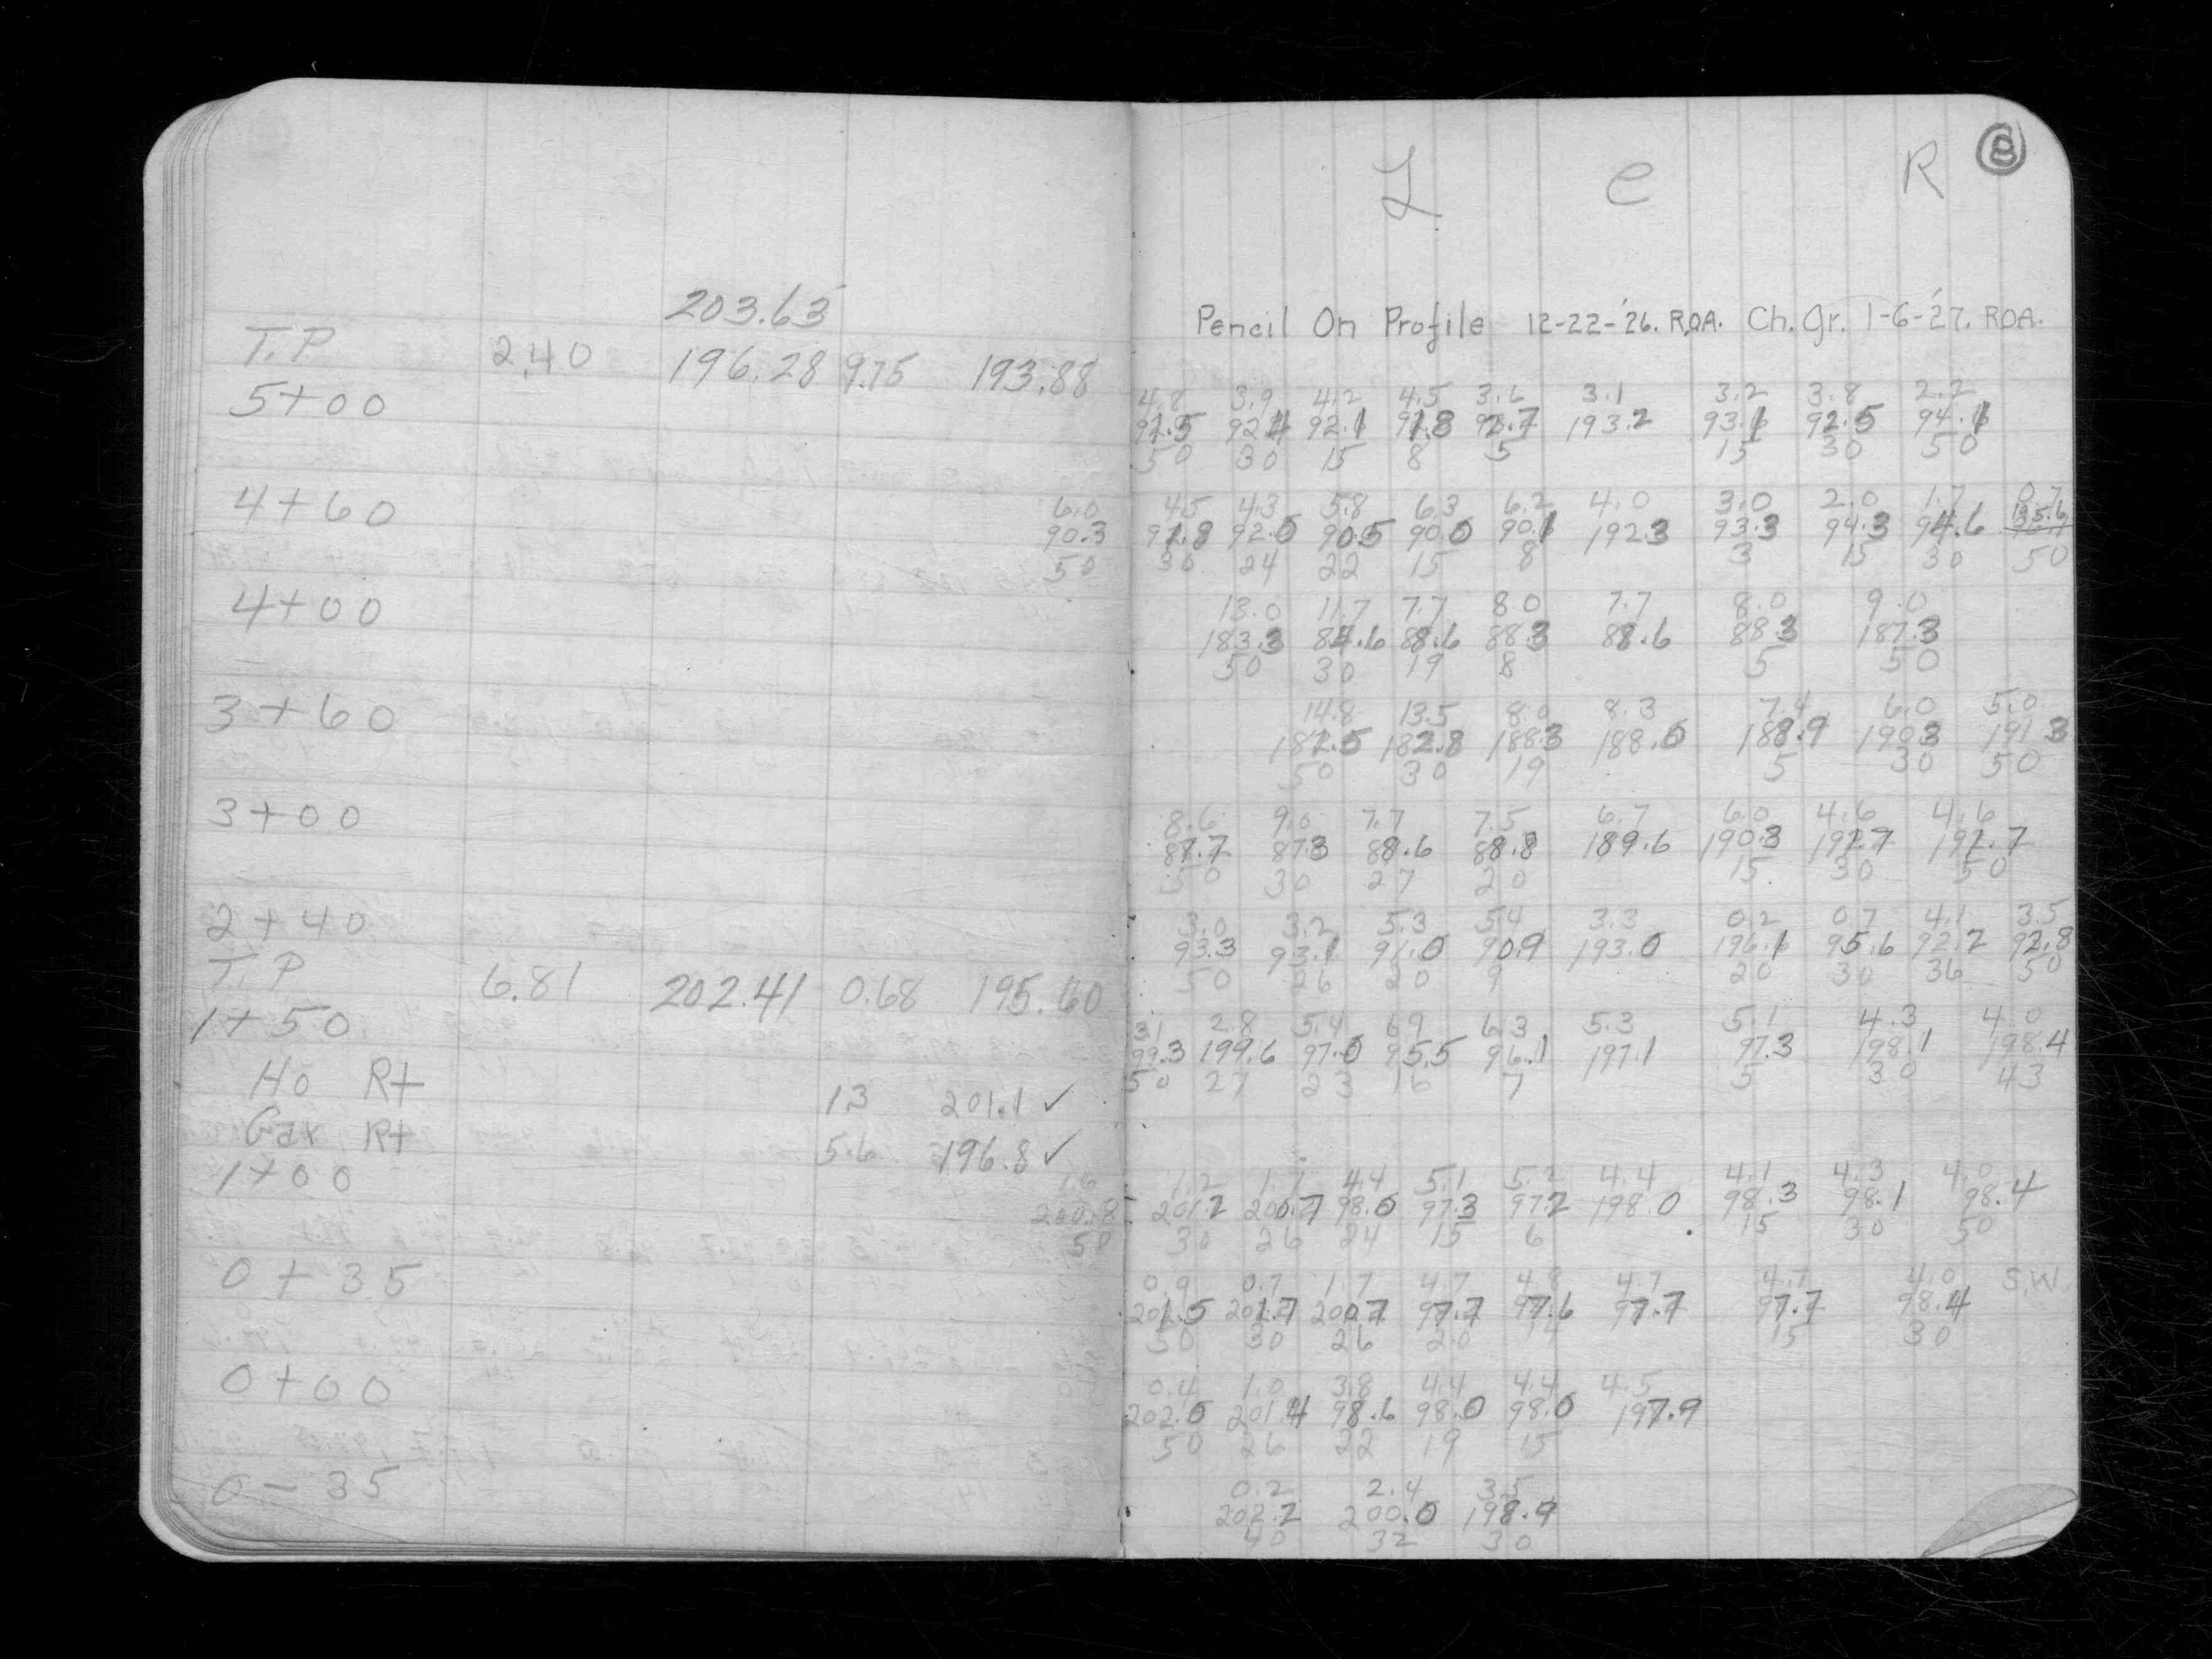 L C R B
203.63
Pencil On Profile 12-22-'26. R.O.A. Ch. Gr. 1-6-'27. ROA.
T.P 2.40 196.28 9.75 193.88
5+00 4.8 3.9 4.2 4.5 3.6 3.1 3.2 3.8 2.2
91.5 92.4 92.1 91.8 92.7 193.2 93.1 92.5 94.1
50 30 15 8 5 15 30 50
4+60 6.0 4.5 4.3 5.8 6.3 6.2 4.0 3.0 2.0 1.7 0.7
90.3 91.8 92.0 90.5 90.0 90.1 192.3 93.3 94.3 94.6 195.6
50 30 24 22 15 8 3 15 30 50
4+00 13.0 11.7 7.7 8.0 7.7 8.0 9.0
183.3 84.6 88.6 88.3 88.6 88.3 187.3
50 30 19 8 5 50
3+60 14.8 13.5 8.0 8.3 7.4 6.0 5.0
181.5 182.8 188.3 188.0 188.9 190.3 191.3
50 30 19 5 30 50
3+00 8.6 9.0 7.7 7.5 6.7 6.0 4.6 4.6
87.7 87.3 88.6 88.8 189.6 190.3 191.7 191.7
50 30 27 20 15 30 50
2+40 3.0 3.2 5.3 5.4 3.3 0.2 0.7 4.1 3.5
93.3 93.1 91.0 90.9 193.0 196.1 95.6 92.2 92.8
50 26 20 9 20 30 36 50
T.P 6.81 202.41 0.68 195.60
1+50 3.1 2.8 5.4 6.9 6.3 5.3 5.1 4.3 4.0
99.3 199.6 97.0 95.5 96.1 197.1 97.3 198.1 198.4
50 27 23 16 7 5 30 43
Ho Rt 1.3 201.1 ✓
Gar Rt 5.6 196.8 ✓
1+00 1.6 1.2 1.7 4.4 5.1 5.2 4.4 4.1 4.3 4.0
200.8 201.2 200.7 98.0 97.3 97.2 198.0 98.3 98.1 98.4
50 30 26 24 15 6 15 30 50
0+35 0.9 0.7 1.7 4.7 4.8 4.7 4.7 4.0 S.W.
201.5 201.7 200.7 97.7 97.6 97.7 97.7 98.4
50 30 26 20 14 15 30
0+00 0.4 1.0 3.8 4.4 4.4 4.5
202.0 201.4 98.6 98.0 98.0 197.9
50 26 22 19 15
0-35 0.2 2.4 3.5
202.2 200.0 198.9
40 32 30